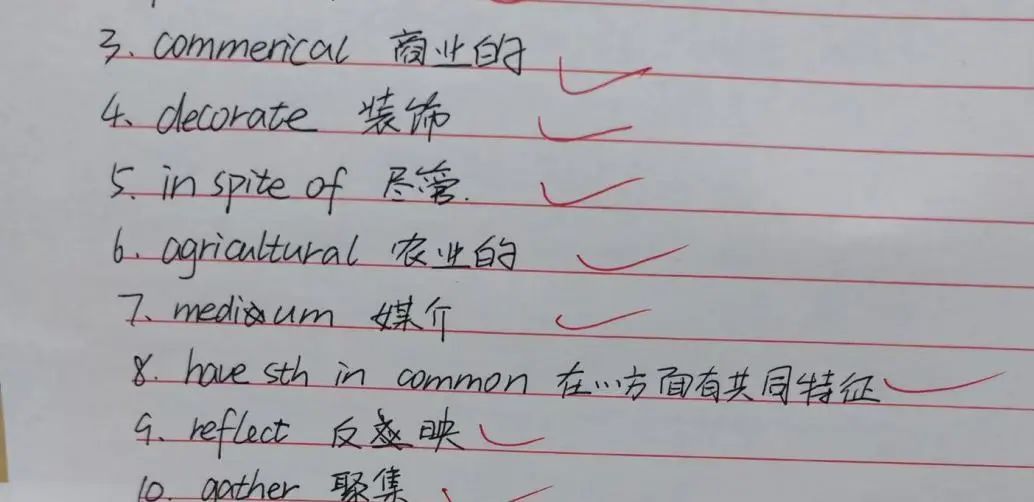 3. commerical 商业的
4. decorate 装饰
5. in spite of 尽管.
6. agricultural 农业的
7. medium 媒介
8. have sth in common 在...方面有共同特征
9. reflect 反映
10. gather 聚集